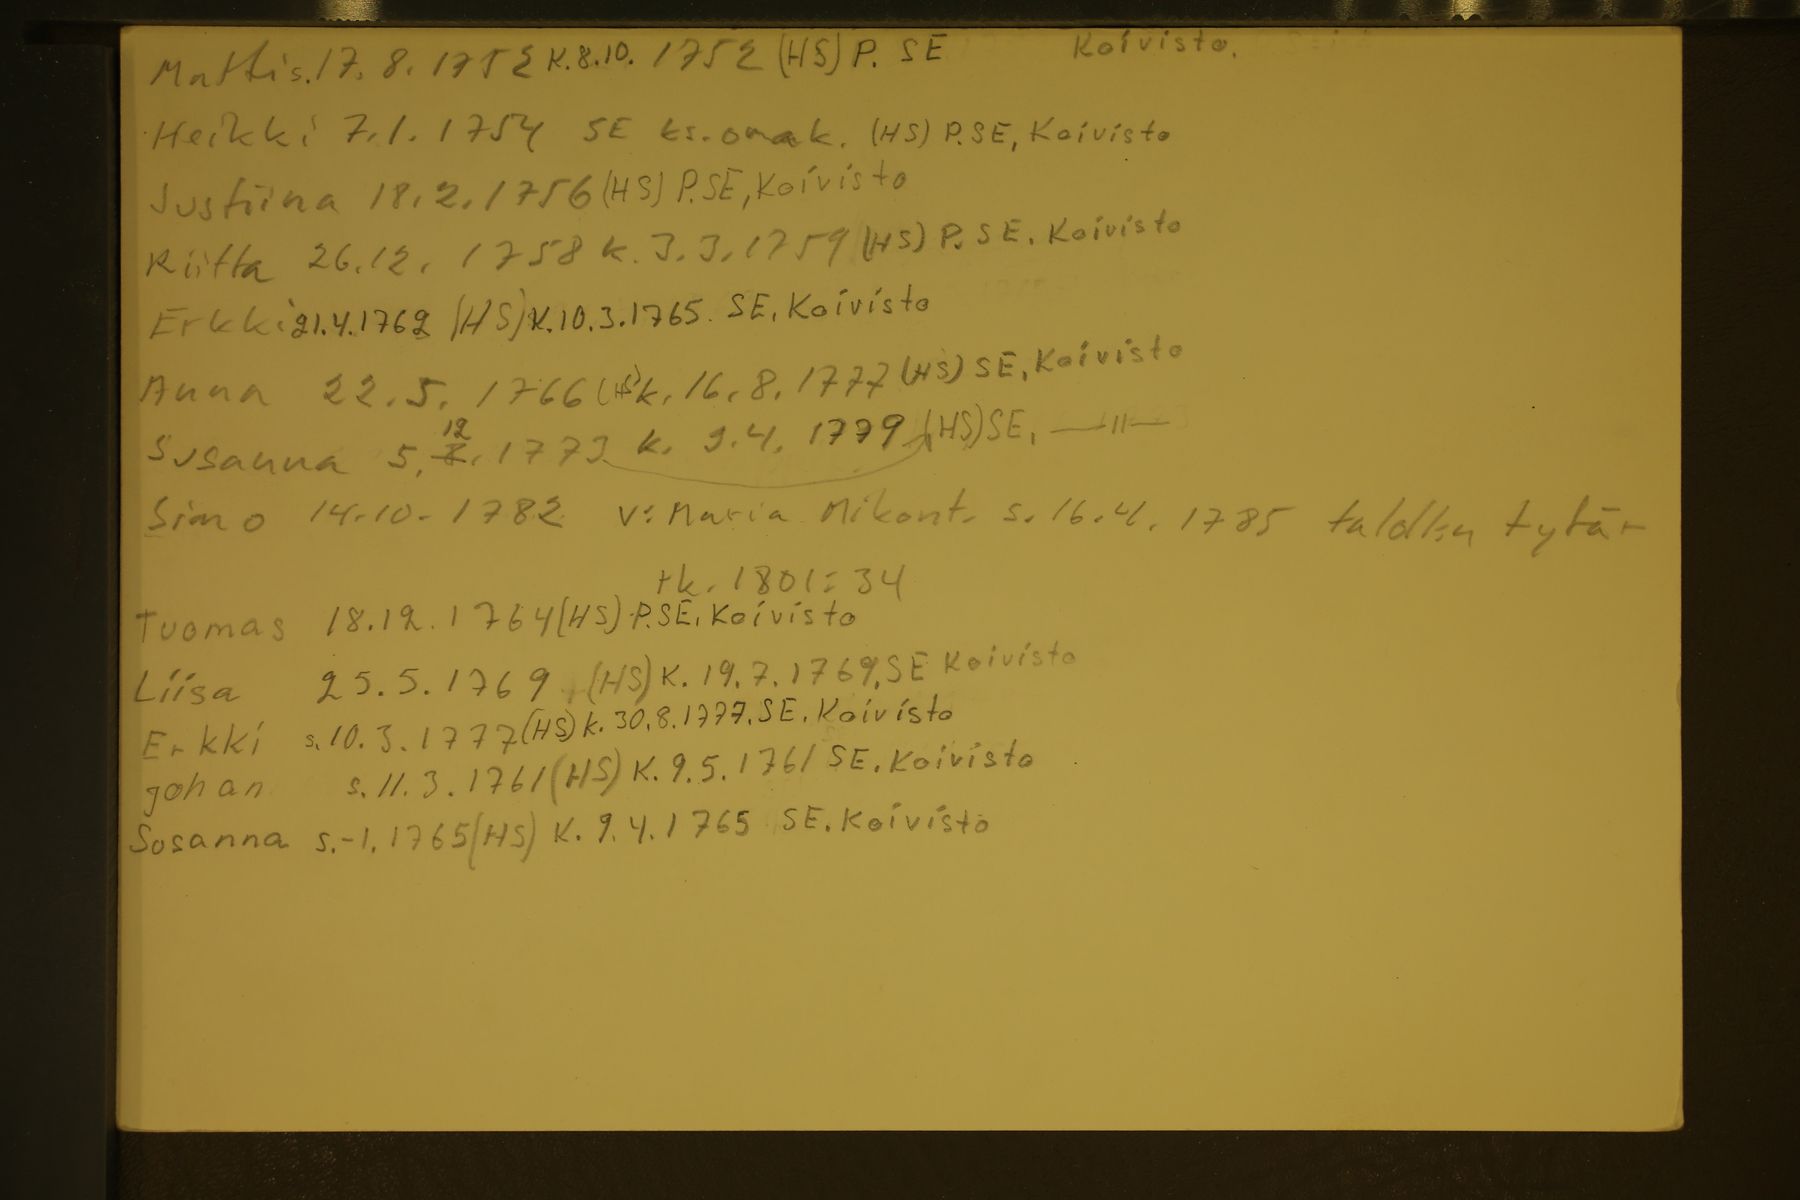 Matti s. 17. 8. 1752 K. 8.10. 1752 (HS) P. SE Koivisto.
Heikki 7.1. 1754 SE ks. omak. (HS) P.SE, Koivisto
Justiina 18.2.1756 (HS) P.SE, Koivisto
Riitta 26.12. 1758 k. 3.3.1759 (HS) P. SE. Koivisto
Erkki 21.4.1762 (HS) K.10.3.1765. SE, Koivisto
Anna 22.5. 1766 (HS) k. 16.8.1777 (HS) SE, Koivisto
Susanna 5.12. 1773 k. 9.4. 1779 (HS) SE, —〃—
Simo 14.10. 1782 v: Maria Mikont. s. 16.4. 1785 tytär
rk. 1801: 34
Tuomas 18.12.1764 (HS) P.SE. Koivisto
Liisa 25.5.1769 (HS) K. 19.7.1769. SE Koivisto
Erkki s. 10.3.1777 (HS) k. 30.8.1777. SE. Koivisto
Johan s. 11.3.1761 (HS) K. 9.5.1761 SE. Koivisto
Susanna s. -1. 1765 (HS) K. 9.4.1765 SE. Koivisto